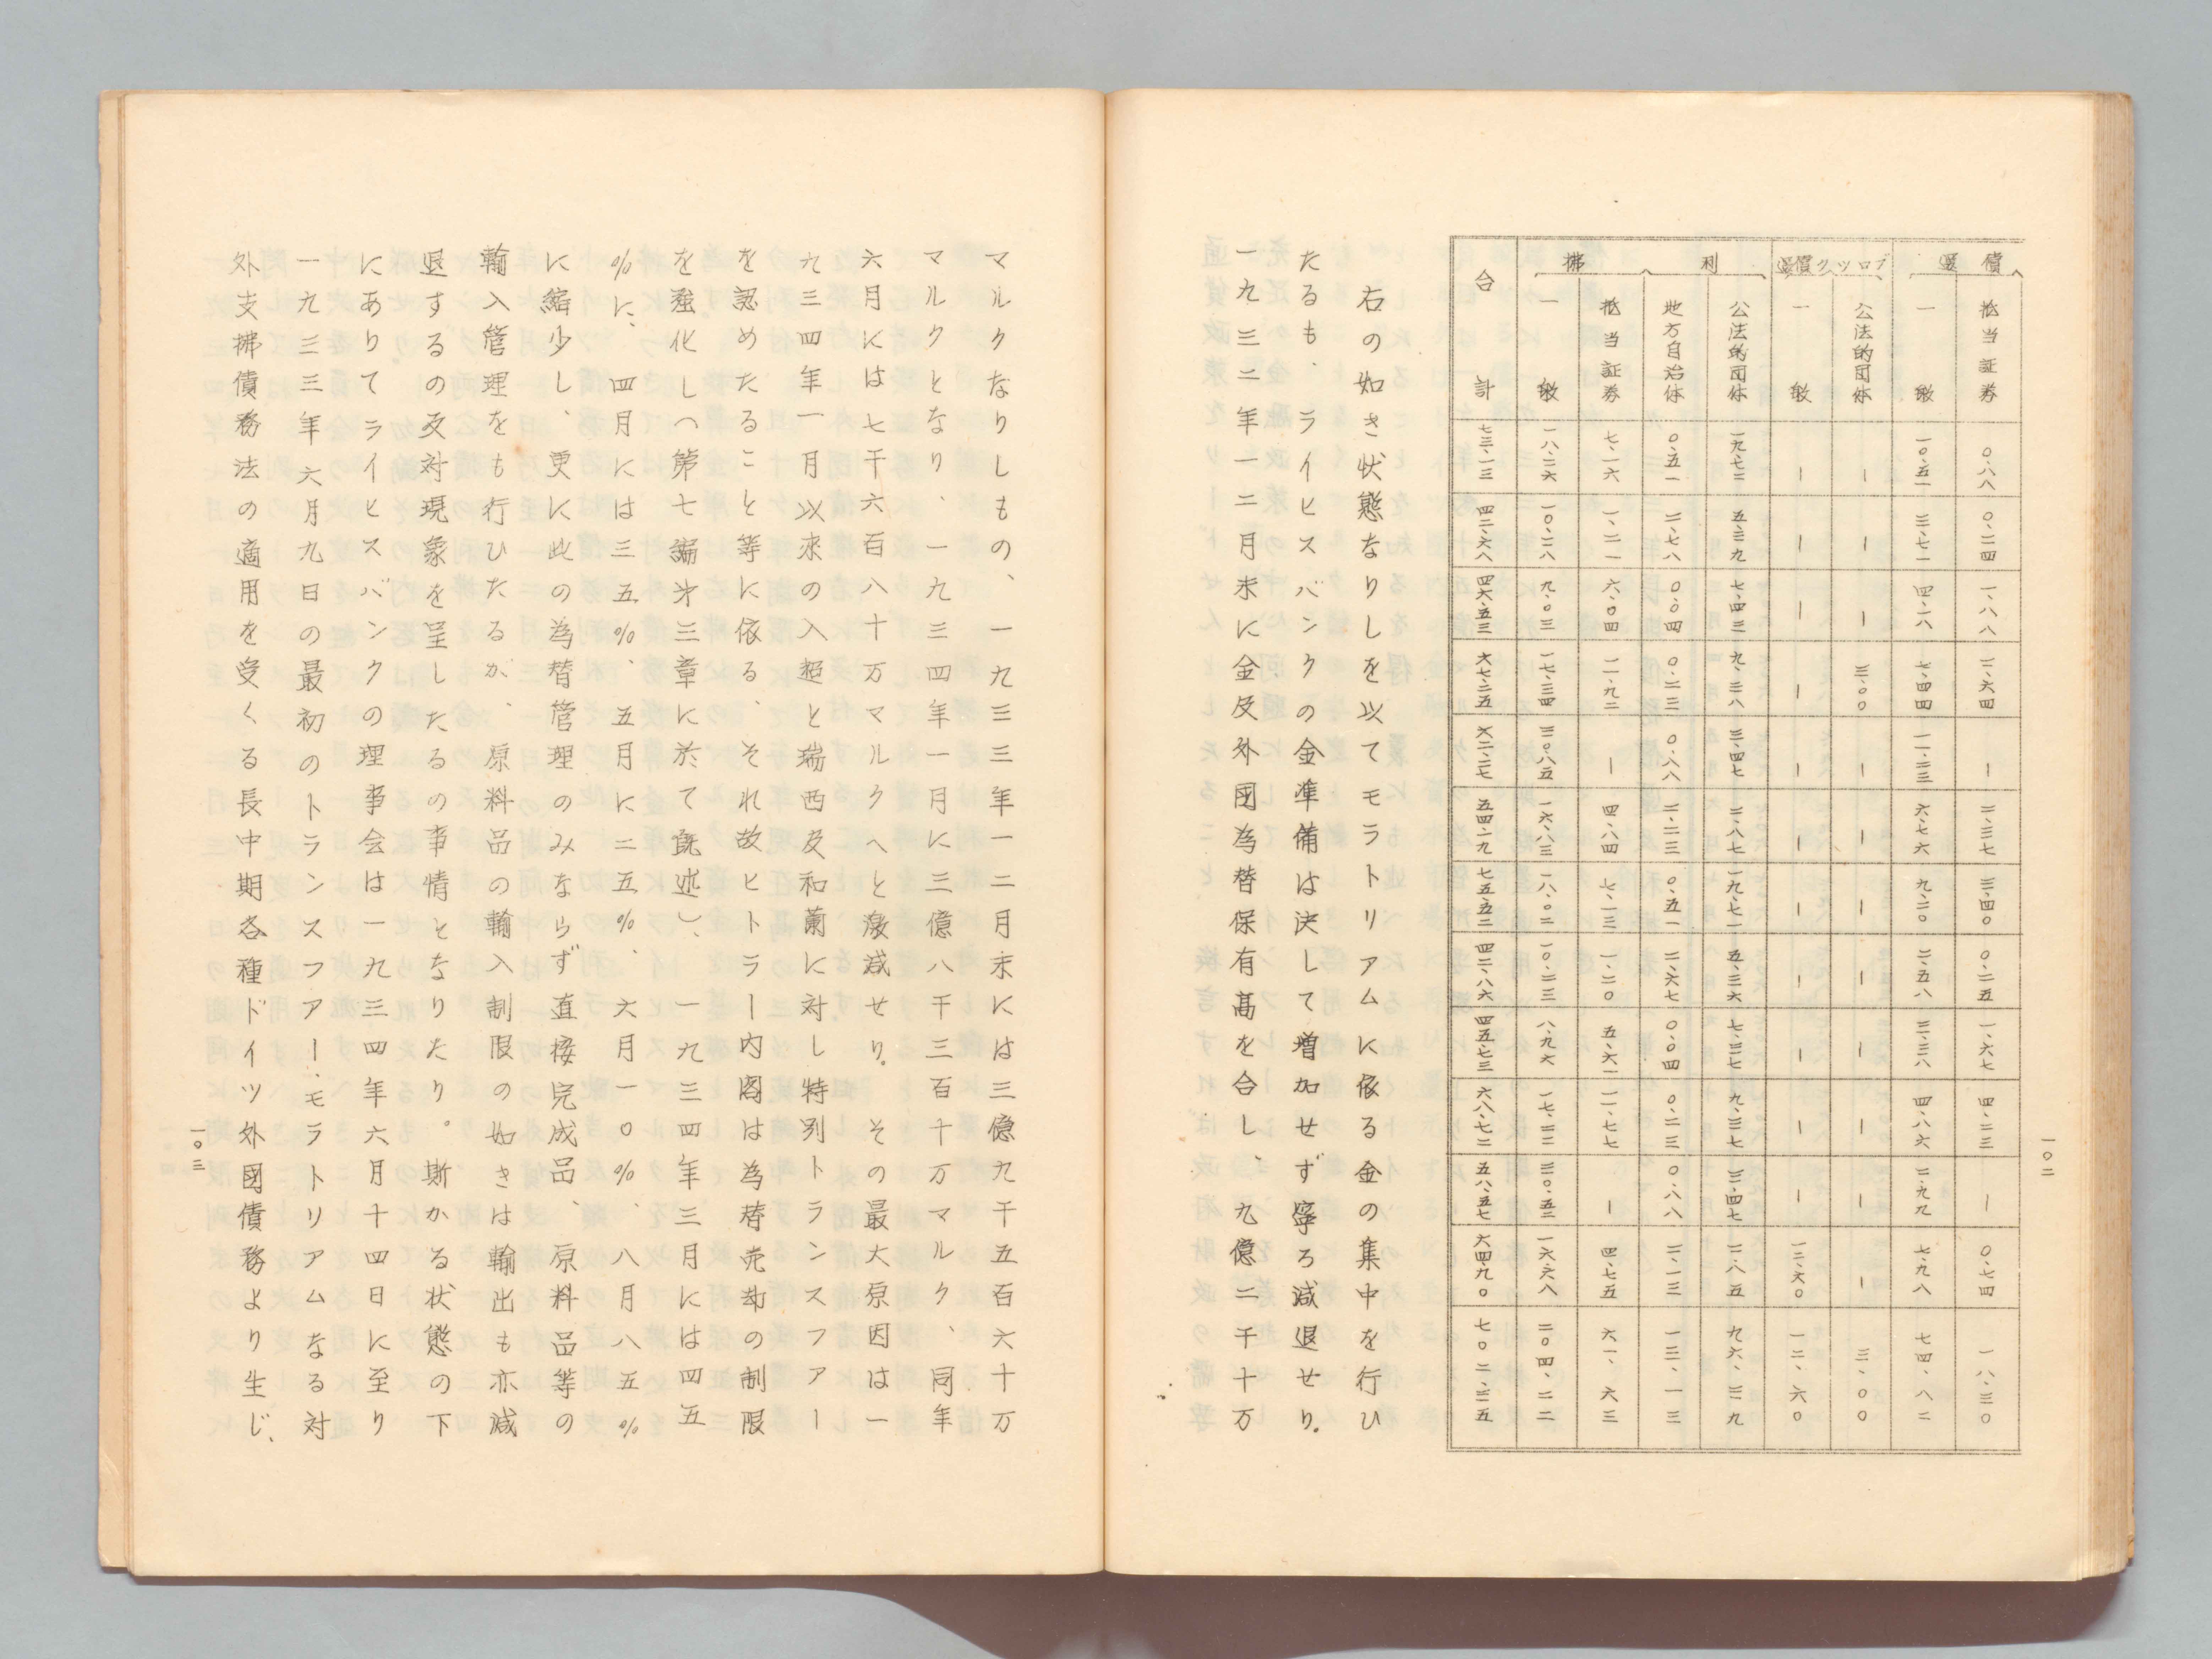 一〇二
償還
抵当証券 〇・八八 〇・二四 一・八八 二・六四 ― 二・三七 三・四〇 〇・二五 一・六七 四・二三 ― 〇・七四 一八・三〇
一般 一〇・五一 三・七一 四・二八 七・四四 一一・二三 六・七六 九・二〇 二・五八 三・二八 四・八六 二・九九 七・九八 七四・八二
ブロック償還
公法的団体 ― ― ― 三・〇〇 ― ― ― ― ― ― ― ― 三・〇〇
一般 ― ― ― ― ― ― ― ― ― ― ― 一二・六〇 一二・六〇
利拂
公法的団体 一九・七二 五・三九 七・四三 九・三八 三・四七 二・八七 一九・七一 五・三六 七・三七 九・三七 三・四七 二・八五 九六・三九
地方自治体 〇・五一 二・七八 〇・〇四 〇・二三 〇・八八 二・二三 〇・五一 二・六七 〇・〇四 〇・二三 〇・八八 二・一三 一三・一三
抵当証券 七・一六 一・二一 六・〇四 一一・九二 ― 四・八四 七・一三 一・二〇 五・六一 一一・七七 ― 四・七五 六一・六三
一般 一八・二六 一〇・二八 九・〇三 一七・三四 三〇・八五 一六・八三 一八・〇二 一〇・二三 八・九六 一七・二二 三〇・五二 一六・六八 二〇四・二二
合計 七三・一三 四二・六八 四六・五三 六七・二五 六二・二七 五四・一九 七五・五二 四二・八六 四五・七三 六八・七二 五八・五七 六四・九〇 七〇二・三五
右の如き状態なりしを以てモラトリアムに依る金の集中を行ひ
たるも、ライヒスバンクの金準備は決して増加せず寧ろ減退せり。
一九三二年一二月末に金及外国為替保有高を合し、九億二千十万
マルクなりしもの、一九三三年一二月末には三億九千五百六十万
マルクとなり、一九三四年一月に三億八千三百十万マルク、同年
六月には七千六百八十万マルクへと激減せり。その最大原因は一
九三四年一月以来の入超と瑞西及和蘭に対し特別トランスフアー
を認めたること等に依る、それ故ヒトラー内閣は為替売却の制限
を強化し（第七編㐧三章に於て既述）、一九三四年三月には四五
％に、四月には三五％、五月に二五％、六月一〇％、八月八五％
に縮少し、更に此の為替管理のみならず直接完成品、原料品等の
輸入管理をも行ひたるが、原料品の輸入制限の如きは輸出も亦減
退するの反対現象を呈したるの事情となりたり。斯かる状態の下
にありてライヒスバンクの理事会は一九三四年六月十四日に至り
一九三三年六月九日の最初のトランスフアー・モラトリアムなる対
外支拂債務法の適用を受くる長中期各種ドイツ外國債務より生じ、
一〇三